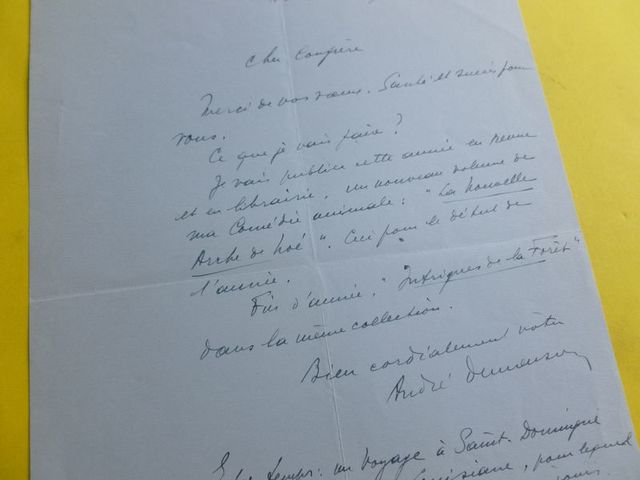 Cher Confrère
Merci de vos vœux. Santé et succès pour
vous.
Ce que je vais faire?
Je vais publier cette année en revue
et en librairie, un nouveau volume de
ma Comédie animale: "La Nouvelle
Arche de Noé". Ceci pour le début de
l'année.
Fin d'année, "Intrigues de la Forêt"
dans la même collection.
Bien cordialement vôtre
André Demaison
temps: un voyage à Saint-Domingue
pour lequel